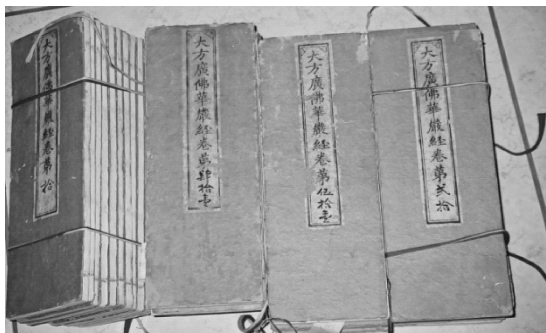 大方廣佛華嚴経卷第拾
大方廣佛華嚴経卷苐肆拾壹
大方廣佛華嚴経卷苐伍拾壹
大方廣佛華嚴経卷第貳拾